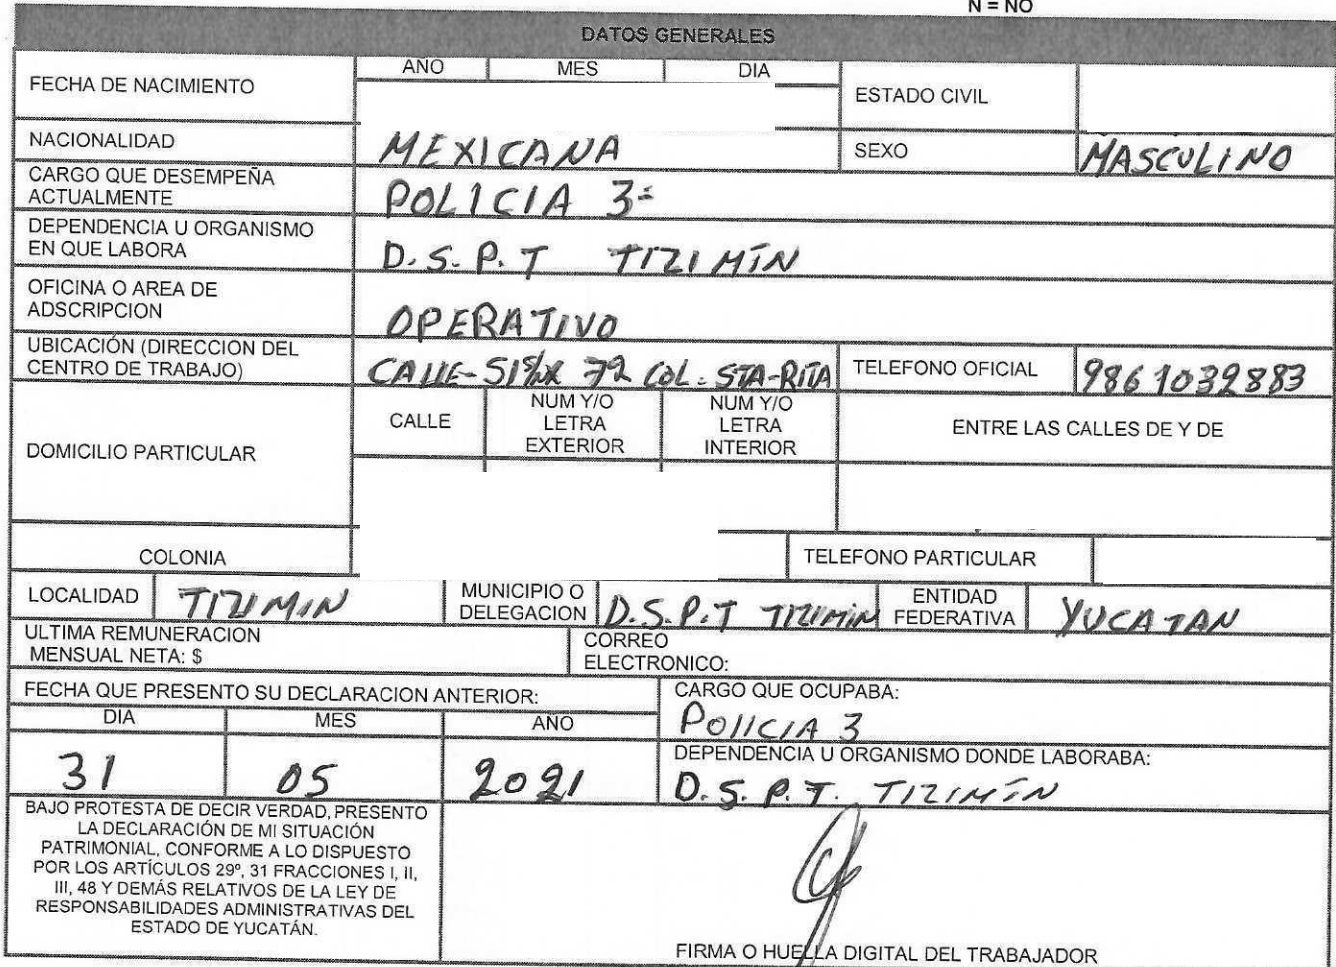 N = NO
DATOS GENERALES
FECHA DE NACIMIENTO
AÑO MES DIA
ESTADO CIVIL
NACIONALIDAD MEXICANA SEXO MASCULINO
CARGO QUE DESEMPEÑA
ACTUALMENTE
POLICIA 3=
DEPENDENCIA U ORGANISMO
EN QUE LABORA
D.S.P.T TIZIMÍN
OFICINA O AREA DE
ADSCRIPCION
OPERATIVO
UBICACIÓN (DIRECCION DEL
CENTRO DE TRABAJO)
CALLE-51 S/N X 72 COL. STA-RITA
TELEFONO OFICIAL 9861032883
DOMICILIO PARTICULAR
CALLE
NUM Y/O
LETRA
EXTERIOR
NUM Y/O
LETRA
INTERIOR
ENTRE LAS CALLES DE Y DE
COLONIA
TELEFONO PARTICULAR
LOCALIDAD TIZIMIN
MUNICIPIO O
DELEGACION
D.S.P.T TIZIMIN
ENTIDAD
FEDERATIVA
YUCATAN
ULTIMA REMUNERACION
MENSUAL NETA: $
CORREO
ELECTRONICO:
FECHA QUE PRESENTO SU DECLARACION ANTERIOR:
DIA MES AÑO
31 05 2021
CARGO QUE OCUPABA:
POlICIA 3
DEPENDENCIA U ORGANISMO DONDE LABORABA:
D.S.P.T. TIZIMÍN
BAJO PROTESTA DE DECIR VERDAD, PRESENTO
LA DECLARACIÓN DE MI SITUACIÓN
PATRIMONIAL, CONFORME A LO DISPUESTO
POR LOS ARTÍCULOS 29º, 31 FRACCIONES I, II,
III, 48 Y DEMÁS RELATIVOS DE LA LEY DE
RESPONSABILIDADES ADMINISTRATIVAS DEL
ESTADO DE YUCATÁN.
FIRMA O HUELLA DIGITAL DEL TRABAJADOR